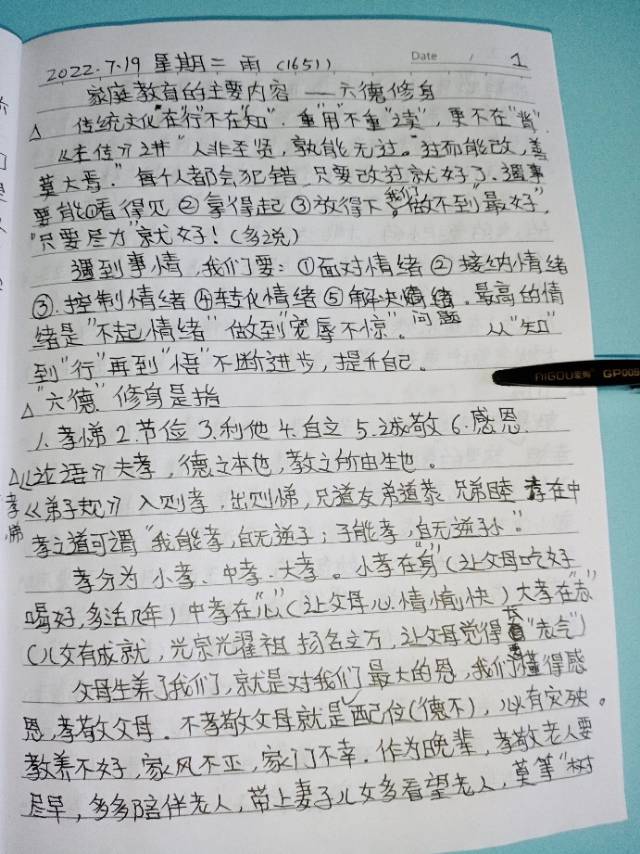 Date / 1
2022.7.19 星期二 雨 (1651)
家庭教育的主要内容 — 六德修身
△ 传统文化"在"行"不在"知",重"用"不重"读",更不在"背".
《左传》讲"人非圣贤,孰能无过。过而能改,善
莫大焉."每个人都会犯错,只要改过就好了.遇事
要能①看得见②拿得起③放得下。我们做不到"最好",
"只要尽力"就好!(多说)
遇到事情,我们要:①面对情绪②接纳情绪
③.控制情绪④转化情绪⑤解决问题.最高的情
绪是"不起情绪"做到"宠辱不惊"。从"知"
到"行"再到"悟"不断进步,提升自己。
AIGOU GP005
△"六德"修身是指
1.孝悌 2.节俭 3.利他 4.自立 5.诚敬 6.感恩.
△《论语》夫孝,德之本也,教之所由生也。
孝悌
《弟子规》入则孝,出则悌,兄道友弟道恭 兄弟睦 孝在中
孝之道可谓"我能孝,自无逆子;子能孝,自无逆孙"。
孝分为小孝、中孝、大孝。小孝在"身"(让父母吃好
喝好,多活几年)中孝在"心"(让父母心情愉快)大孝在"志"
(儿女有成就,光宗耀祖 扬名立万,让父母觉得"志气")
父母生养了我们,就是对我们最大的恩,我们懂得感
恩,孝敬父母.不孝敬父母就是配位(德不),必有灾殃。
教养不好,家风不正,家门不幸.作为晚辈,孝敬老人要
尽早,多多陪伴老人,带上妻子儿女多看望老人,莫等"树